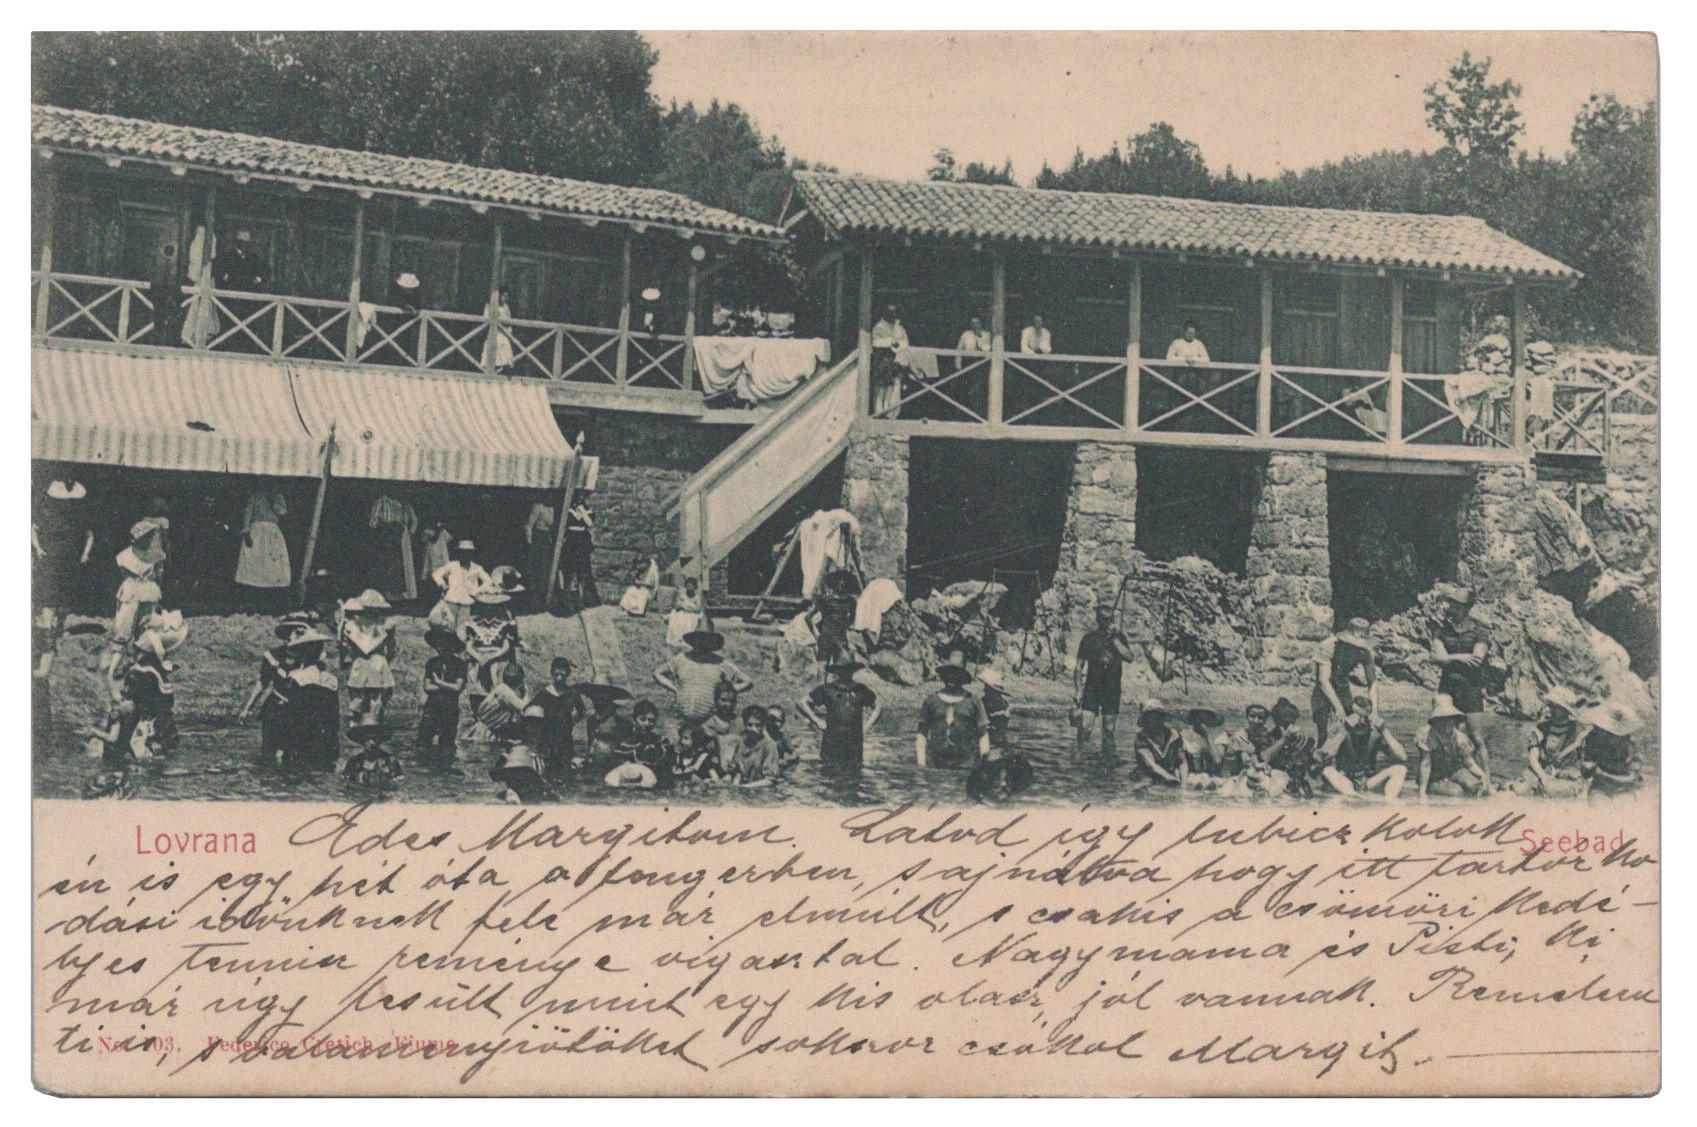 Lovrana Édes Margitom. Látod így lubiczkolok Seebad
én is egy hét óta a tengerben, sajnálva hogy itt tartózko
dási idönknek fele már elmult, s csakis a csömöri kedé-
lyes tennisz reménye vigasztal. Nagymama és Pisti, ki
már úgy lesült mint egy kis olasz, jól vannak. Remélem
ti is, s valamennyiötöket sokszor csókol Margit.
No. 103. Federico Cretich, Fiume